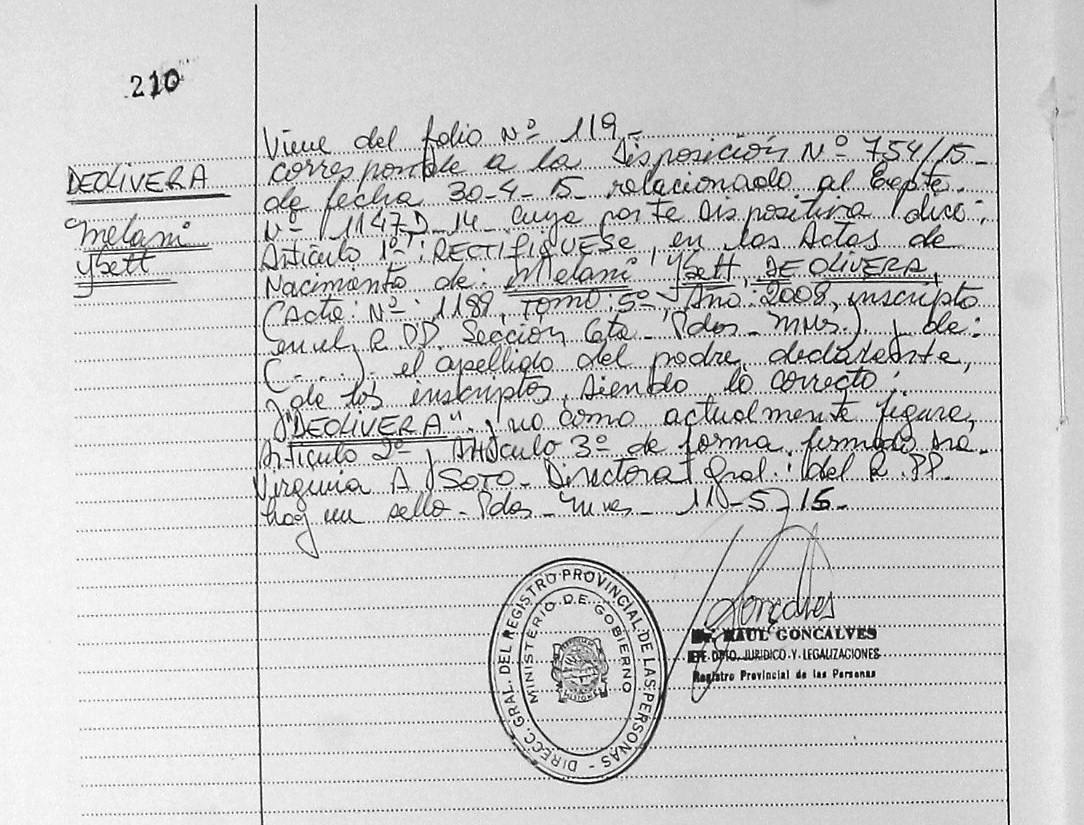 210
DEOLIVERA
Melani
Ybett
Viene del folio Nº 119_
corresponde a la Disposición Nº 754/15_
de fecha 30-4-15 relacionado al Expte.
Nº 1147 D_14 cuya parte dispositiva dice:
Artículo 1º: RECTIFIQUESE, en las Actas de
Nacimiento de: Melani Ybett DEOLIVERA,
(Acta: Nº: 1189, Tomo: 5º, Año: 2008, inscripto
en el R.PP. Sección 6ta_ Pdas_ Mnes.) y de:
(.....) el apellido del padre, declarante,
y de los inscriptos, siendo lo correcto:
"DEOLIVERA", y no como actualmente figura,
Artículo 2º y Artículo 3º de forma, firmado Sra.
Virginia A. SOTO_ Directora Gral. del R.PP.
hay un sello_ Pdas_ Mnes_ 11-5-15_
Goncalves
Dr. RAUL GONCALVES
JEFE DPTO. JURIDICO Y LEGALIZACIONES
Registro Provincial de las Personas
DIRECC. GRAL. DEL REGISTRO PROVINCIAL DE LAS PERSONAS
MINISTERIO DE GOBIERNO
MISIONES